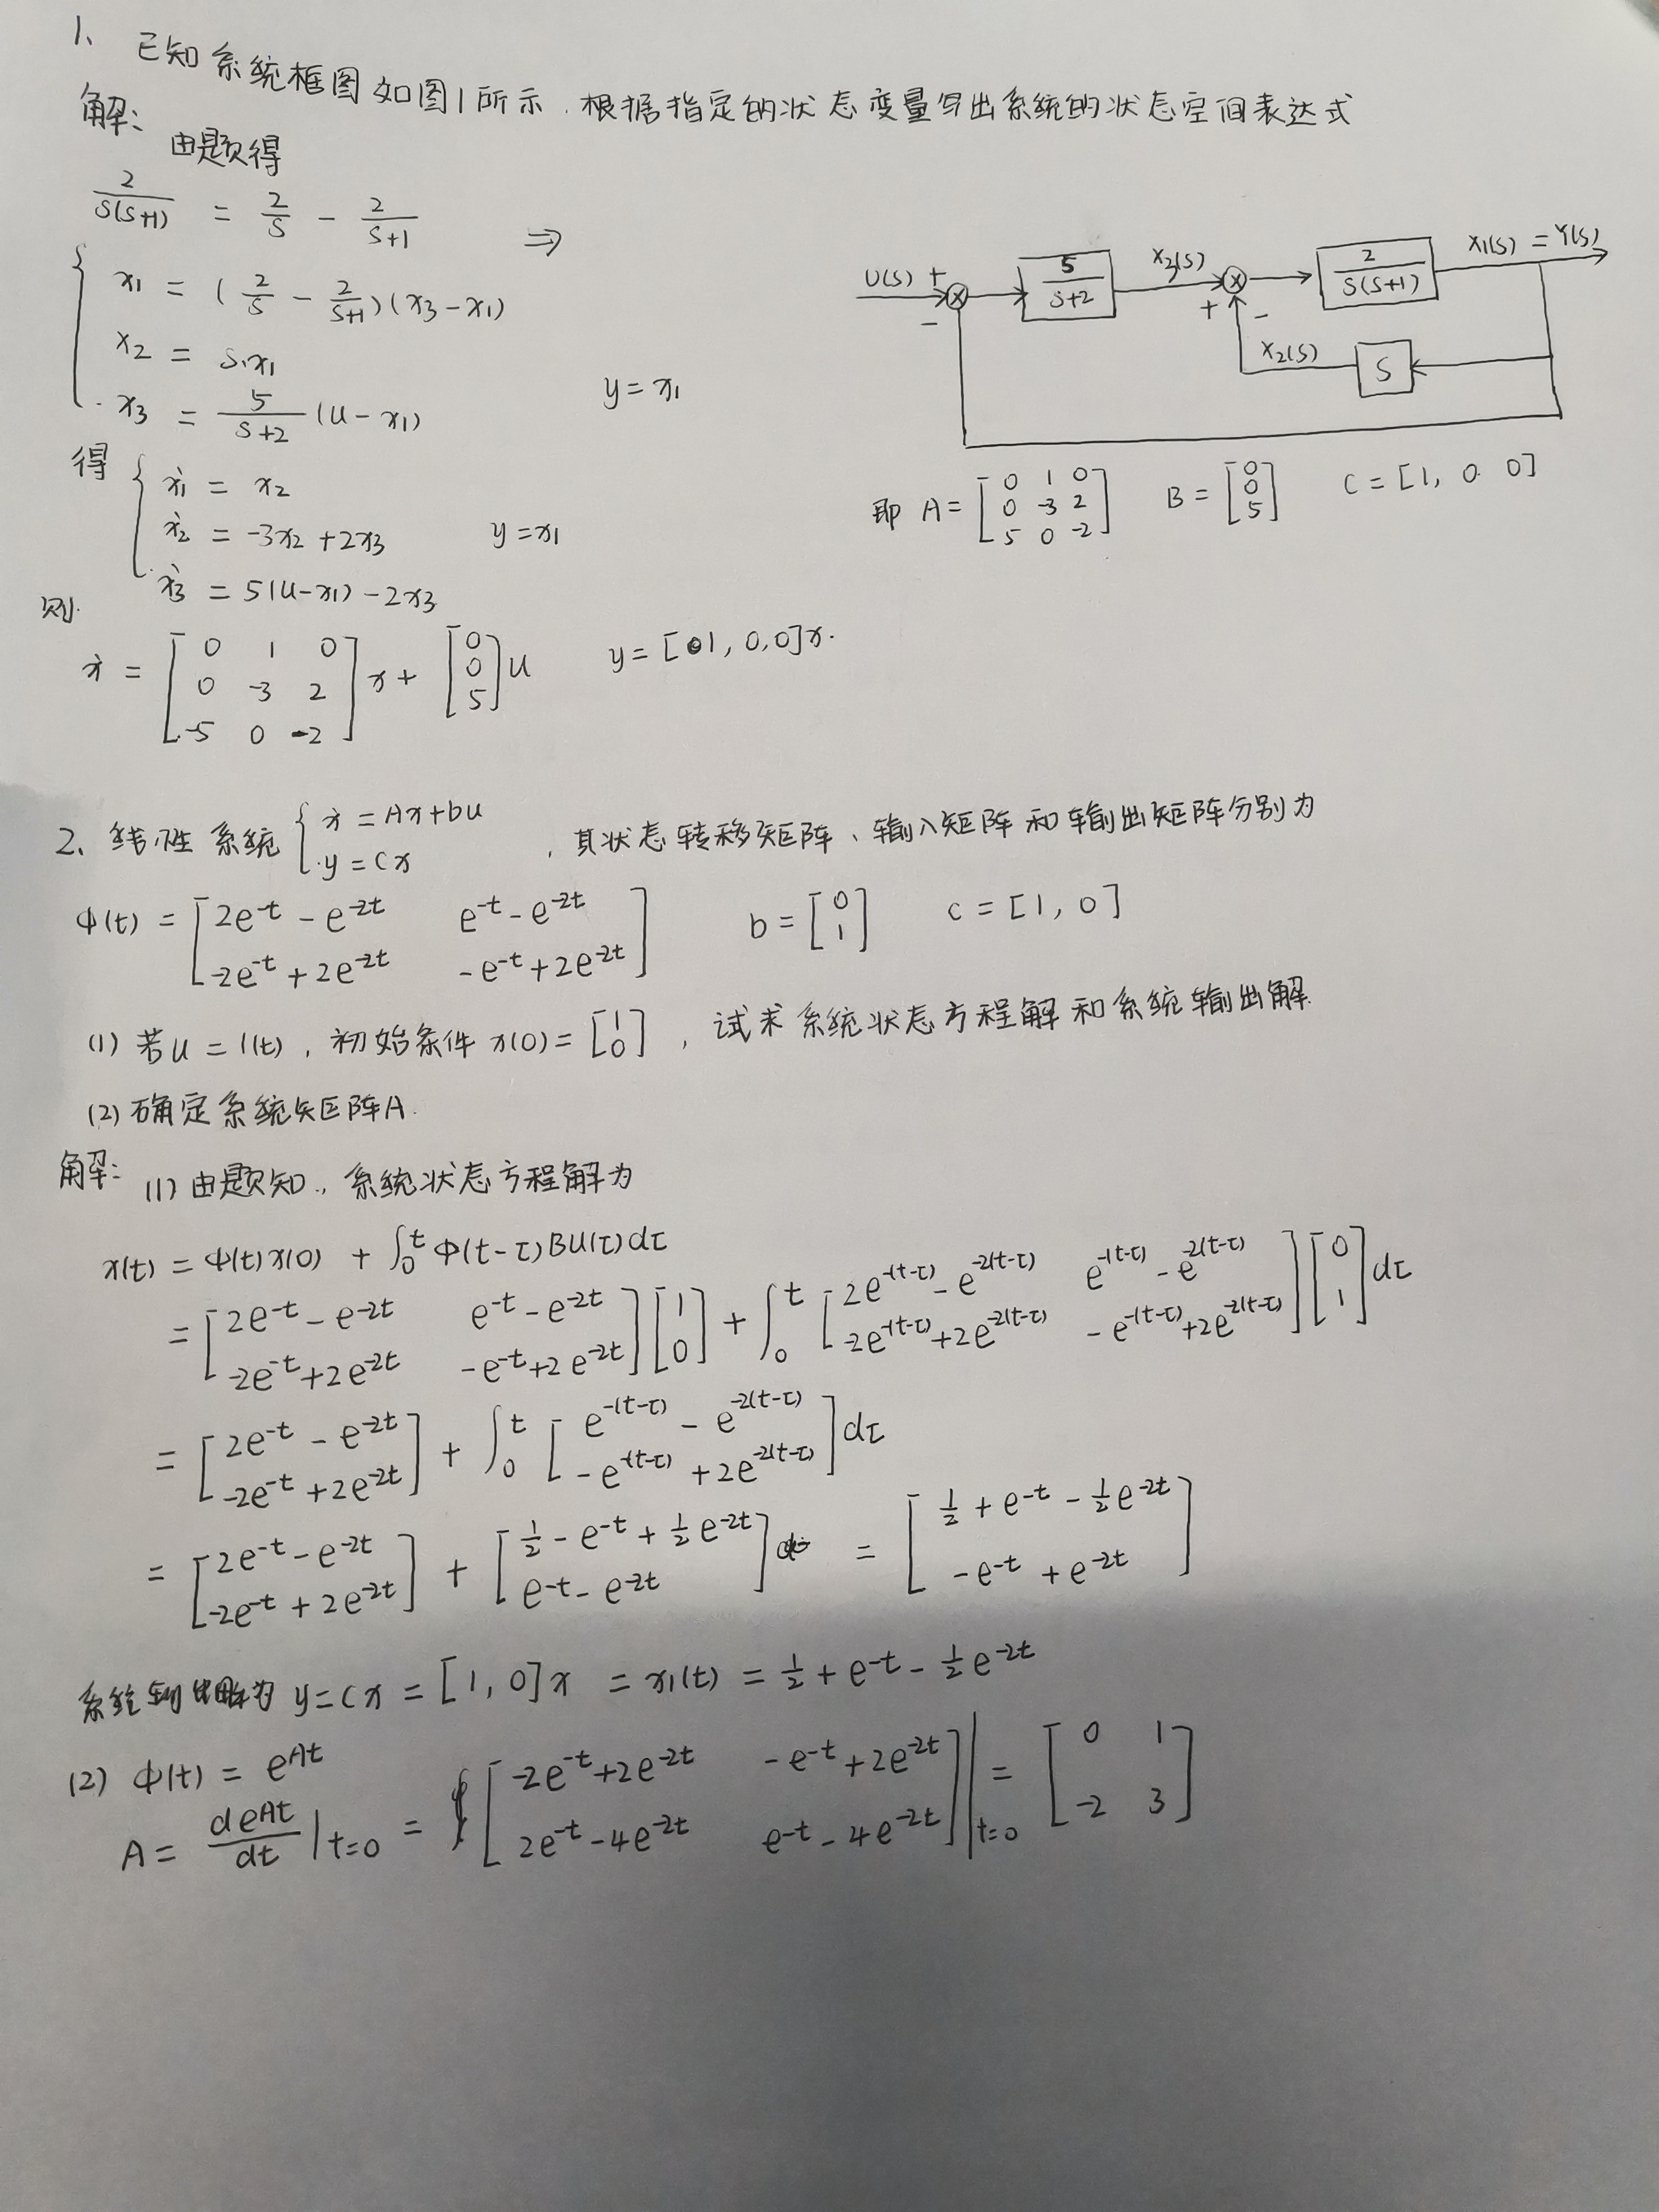 1、已知系统框图如图1所示.根据指定的状态变量写出系统的状态空间表达式
解:
由题得
2/(s(s+1)) = 2/s - 2/(s+1) ⇒
{ x1 = (2/s - 2/(s+1))(x3-x1)
x2 = s·x1
x3 = 5/(s+2) (u-x1)
y = x1
U(s) + - 5/(s+2) X3(s) + - 2/(s(s+1)) X1(s) = Y(s)
X2(s) S
得 { ẋ1 = x2
ẋ2 = -3x2+2x3 y=x1
ẋ3 = 5(u-x1)-2x3
即 A = [0 1 0; 0 -3 2; 5 0 -2] B = [0; 0; 5] C = [1, 0 0]
则
ẋ = [0 1 0; 0 -3 2; -5 0 -2] x + [0; 0; 5] u y = [1, 0, 0]x.
2、线性系统 { ẋ = Ax+bu; y = cx , 其状态转移矩阵、输入矩阵和输出矩阵分别为
φ(t) = [2e^-t - e^-2t e^-t - e^-2t; -2e^-t + 2e^-2t -e^-t + 2e^-2t] b = [0; 1] c = [1, 0]
(1) 若u = 1(t), 初始条件 x(0) = [1; 0], 试求系统状态方程解和系统输出解.
(2) 确定系统矩阵A.
解: (1) 由题知, 系统状态方程解为
x(t) = φ(t)x(0) + ∫0^t φ(t-τ)BU(τ)dτ
= [2e^-t - e^-2t e^-t - e^-2t; -2e^-t+2e^-2t -e^-t+2e^-2t][1; 0] + ∫0^t [2e^-(t-τ) - e^-2(t-τ) e^-(t-τ) - e^-2(t-τ); -2e^-(t-τ)+2e^-2(t-τ) -e^-(t-τ)+2e^-2(t-τ)][0; 1]dτ
= [2e^-t - e^-2t; -2e^-t + 2e^-2t] + ∫0^t [e^-(t-τ) - e^-2(t-τ); -e^-(t-τ) + 2e^-2(t-τ)]dτ
= [2e^-t - e^-2t; -2e^-t + 2e^-2t] + [1/2 - e^-t + 1/2 e^-2t; e^-t - e^-2t] = [1/2 + e^-t - 1/2 e^-2t; -e^-t + e^-2t]
系统输出解为 y = cx = [1, 0]x = x1(t) = 1/2 + e^-t - 1/2 e^-2t
(2) φ(t) = e^At
A = de^At/dt |t=0 = [-2e^-t+2e^-2t -e^-t+2e^-2t; 2e^-t-4e^-2t e^-t-4e^-2t]|t=0 = [0 1; -2 3]